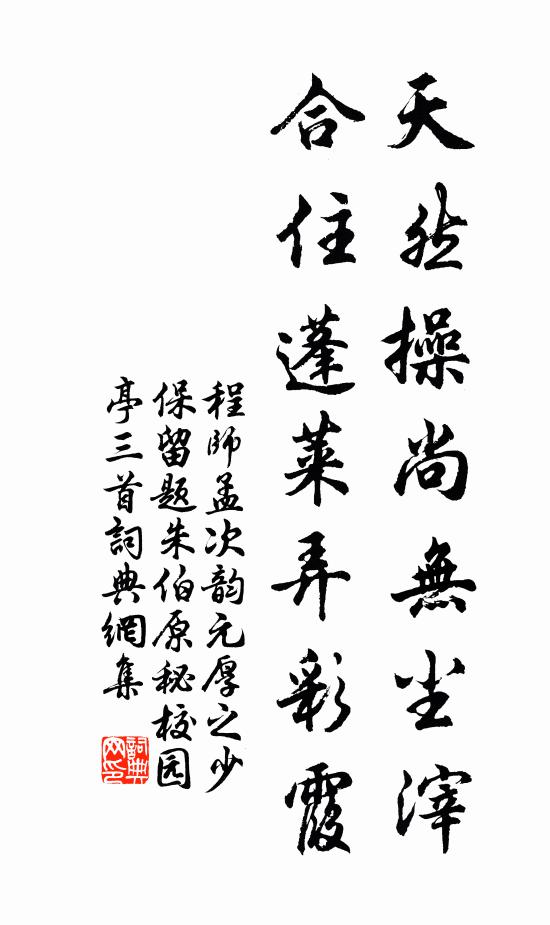 天然操尚無尘滓
合住蓬莱弄彩霞
程師孟次韵元厚之少
保留题朱伯原秘校园
亭三首詞典網集
詞典
网印